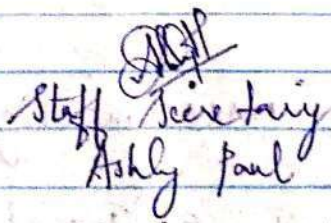 Staff Secretary
Ashly Paul